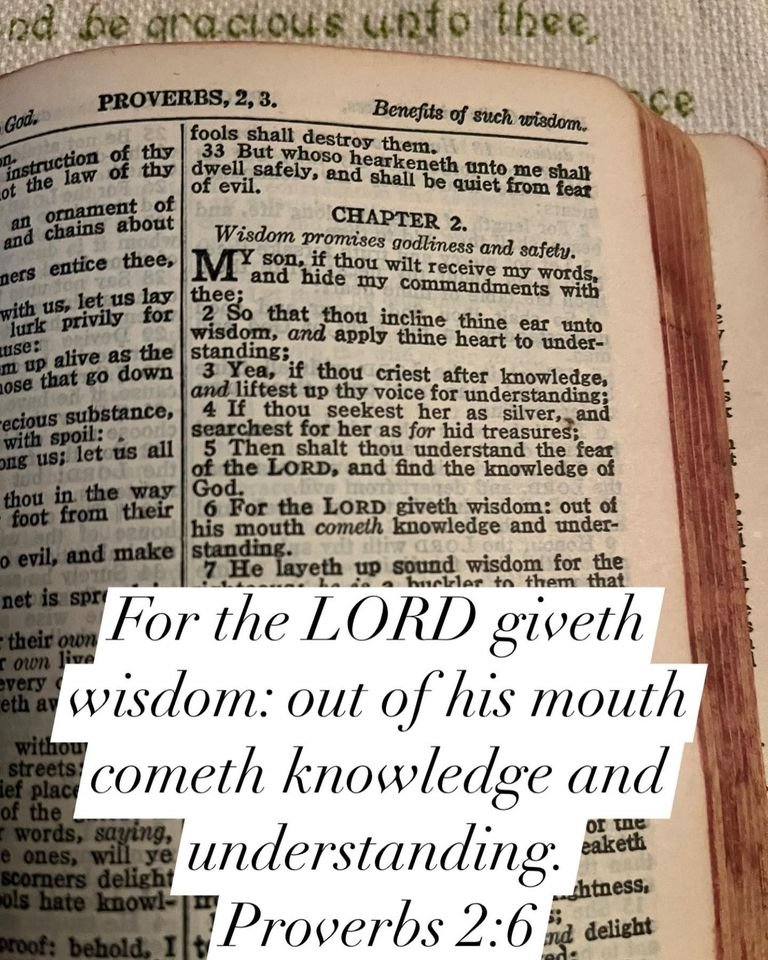 nd be gracious unto thee,
ce
God.
PROVERBS, 2, 3.
Benefits of such wisdom.
instruction of thy
the law of thy
an ornament of
and chains about
entice thee,
with us, let us lay
lurk privily for
up alive as the
that go down
substance,
with spoil:
us; let us all
thou in the way
foot from their
evil, and make
net is
their own
own
every
withou
streets:
place
of the
words, saying,
ones, will ye
scorners delight
hate knowl-
proof: behold, I
fools shall destroy them.
33 But whoso hearkeneth unto me shall
dwell safely, and shall be quiet from fear
of evil.
CHAPTER 2.
Wisdom promises godliness and safety.
MY son, if thou wilt receive my words,
and hide my commandments with
thee;
2 So that thou incline thine ear unto
wisdom, and apply thine heart to under-
standing;
3 Yea, if thou criest after knowledge,
and liftest up thy voice for understanding;
4 If thou seekest her as silver, and
searchest for her as for hid treasures;
5 Then shalt thou understand the fear
of the LORD, and find the knowledge of
God.
6 For the LORD giveth wisdom: out of
his mouth cometh knowledge and under-
standing.
7 He layeth up sound wisdom for the
he is a buckler to them that
of the
eaketh
ghtness,
and delight
For the LORD giveth
wisdom: out of his mouth
cometh knowledge and
understanding.
Proverbs 2:6